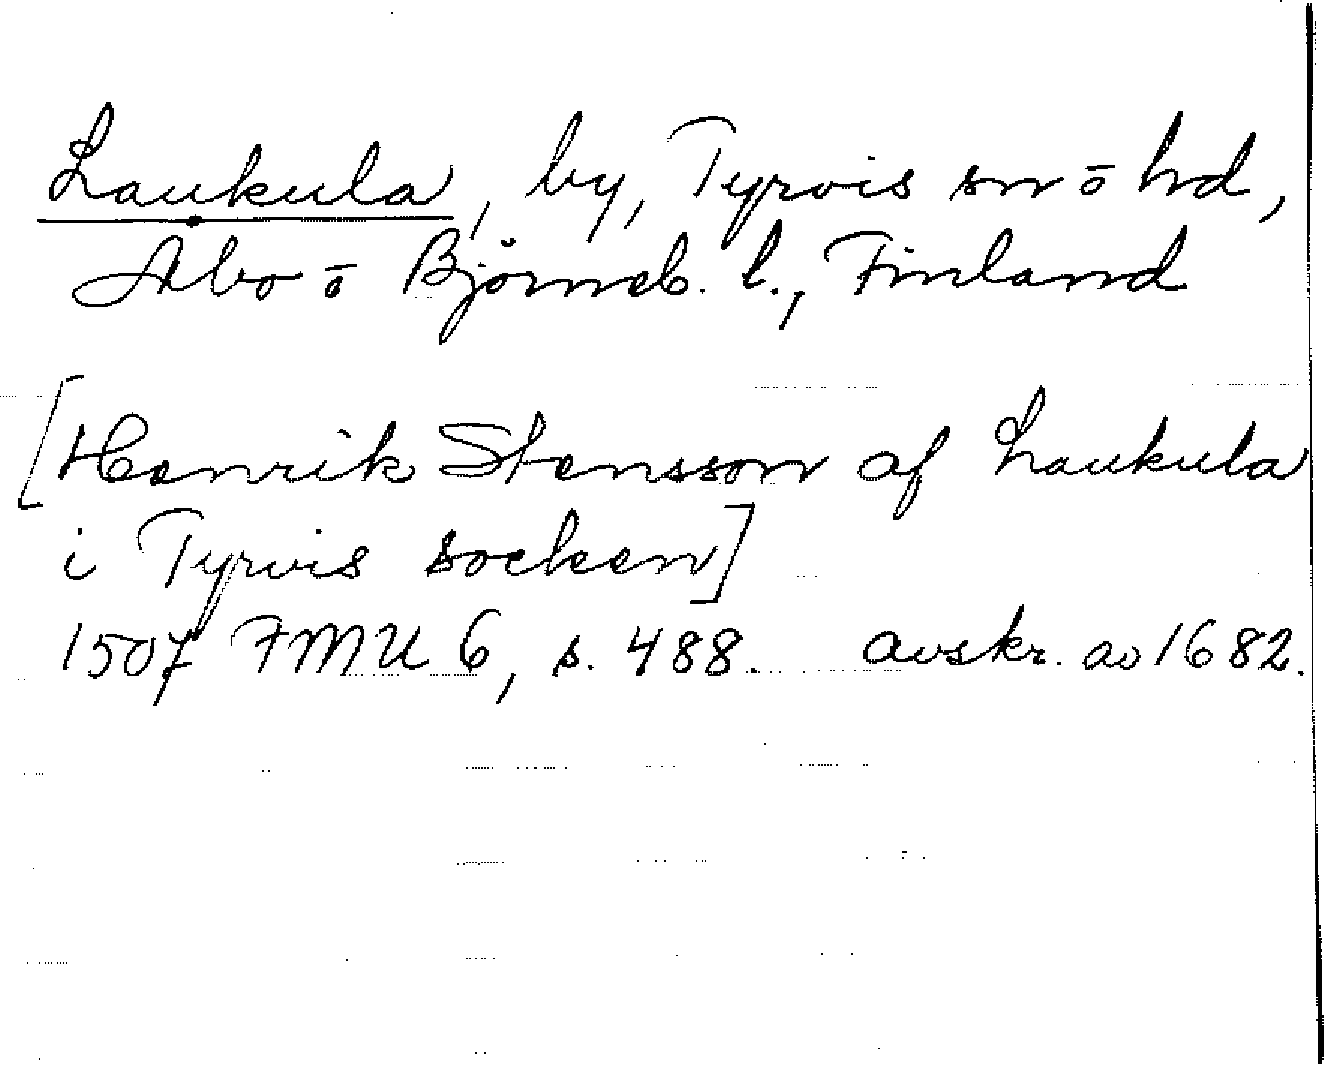 Laukula, by, Tyrvis sn ō hd,
Åbo ō Björneb. l., Finland
[Henrik Stensson af Laukula
i Tyrvis socken]
1507 FMU 6, s. 488. avskr. av 1682.